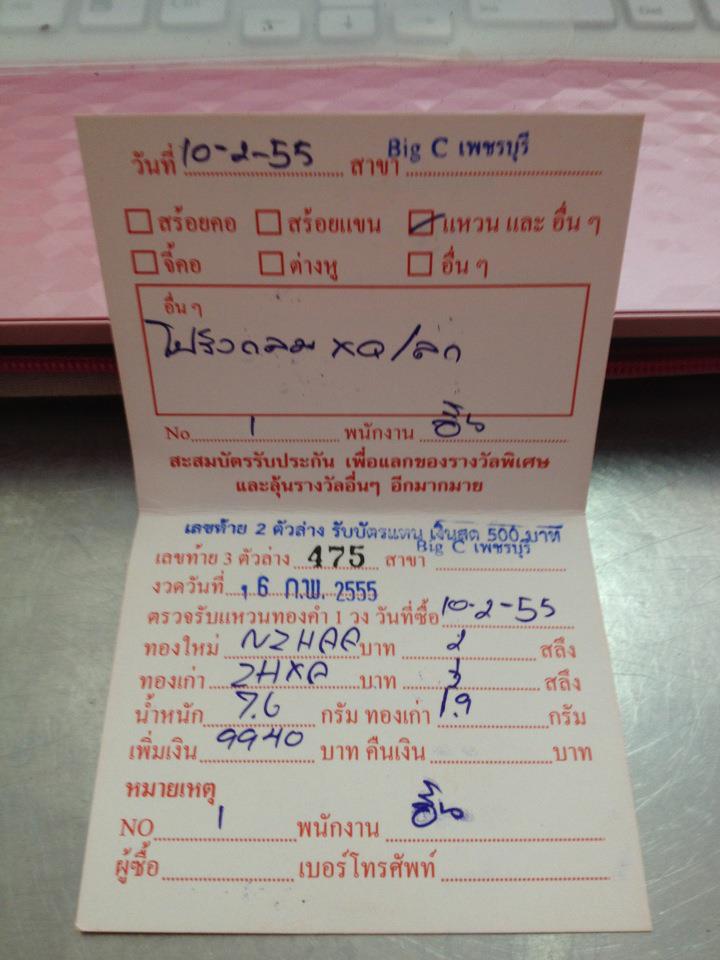 วันที่ 10-2-55 สาขา Big C เพชรบุรี
สร้อยคอ สร้อยแขน แหวน และ อื่น ๆ
จี้คอ ต่างหู อื่น ๆ
อื่น ๆ
โปร่งกลม
No 1 พนักงาน
สะสมบัตรรับประกัน เพื่อแลกของรางวัลพิเศษ
และลุ้นรางวัลอื่นๆ อีกมากมาย
เลขท้าย 2 ตัวล่าง รับบัตรแทน เงินสด 500 บาท
เลขท้าย 3 ตัวล่าง 475 สาขา Big C เพชรบุรี
งวดวันที่ 16 ก.พ. 2555
ตรวจรับแหวนทองคำ 1 วง วันที่ซื้อ 10-2-55
ทองใหม่ บาท 2 สลึง
ทองเก่า บาท สลึง
น้ำหนัก 7.6 กรัม ทองเก่า 1.9 กรัม
เพิ่มเงิน 9940 บาท คืนเงิน บาท
หมายเหตุ
NO 1 พนักงาน
ผู้ซื้อ เบอร์โทรศัพท์